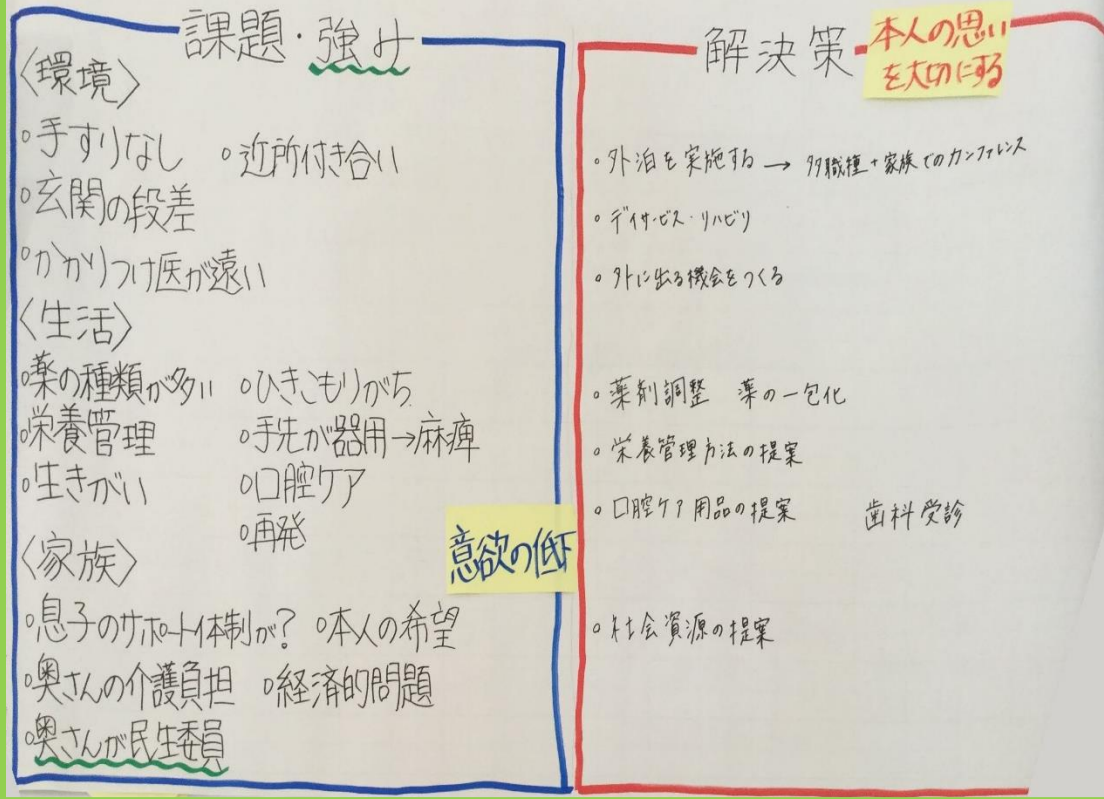 課題・強み
〈環境〉
○手すりなし ○近所付き合い
○玄関の段差
○かかりつけ医が遠い
〈生活〉
○薬の種類が多い ○ひきこもりがち
○栄養管理 ○手先が器用→麻痺
○生きがい ○口腔ケア
○再発
意欲の低下
〈家族〉
○息子のサポート体制が? ○本人の希望
○奥さんの介護負担 ○経済的問題
○奥さんが民生委員
解決策
本人の思い
を大切にする
○外泊を実施する → 多職種+家族でのカンファレンス
○デイサービス・リハビリ
○外に出る機会をつくる
○薬剤調整 薬の一包化
○栄養管理方法の提案
○口腔ケア用品の提案 歯科受診
○社会資源の提案